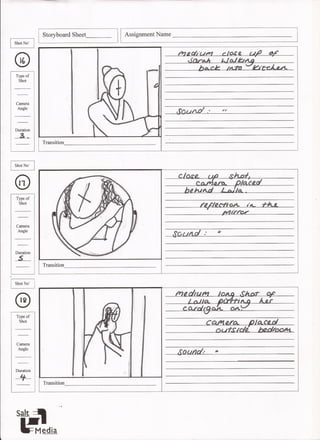 Storyboard Sheet
Assignment Name
Shot No'
16
Type of
Shot
Camera
Angle
Duration
3.
Transition
medium close up of
Sarah walking
back into kitchen
Sound: "
Shot No'
17
Type of
Shot
Camera
Angle
Duration
5
Transition
close up shot,
camera placed
behind Laila.
reflection in the
mirror
Sound: "
Shot No'
18
Type of
Shot
Camera
Angle
Duration
4
Transition
medium long shot of
Laila putting her
cardigan on.
camera placed
outside bedroom
Sound: "
Salt
Media